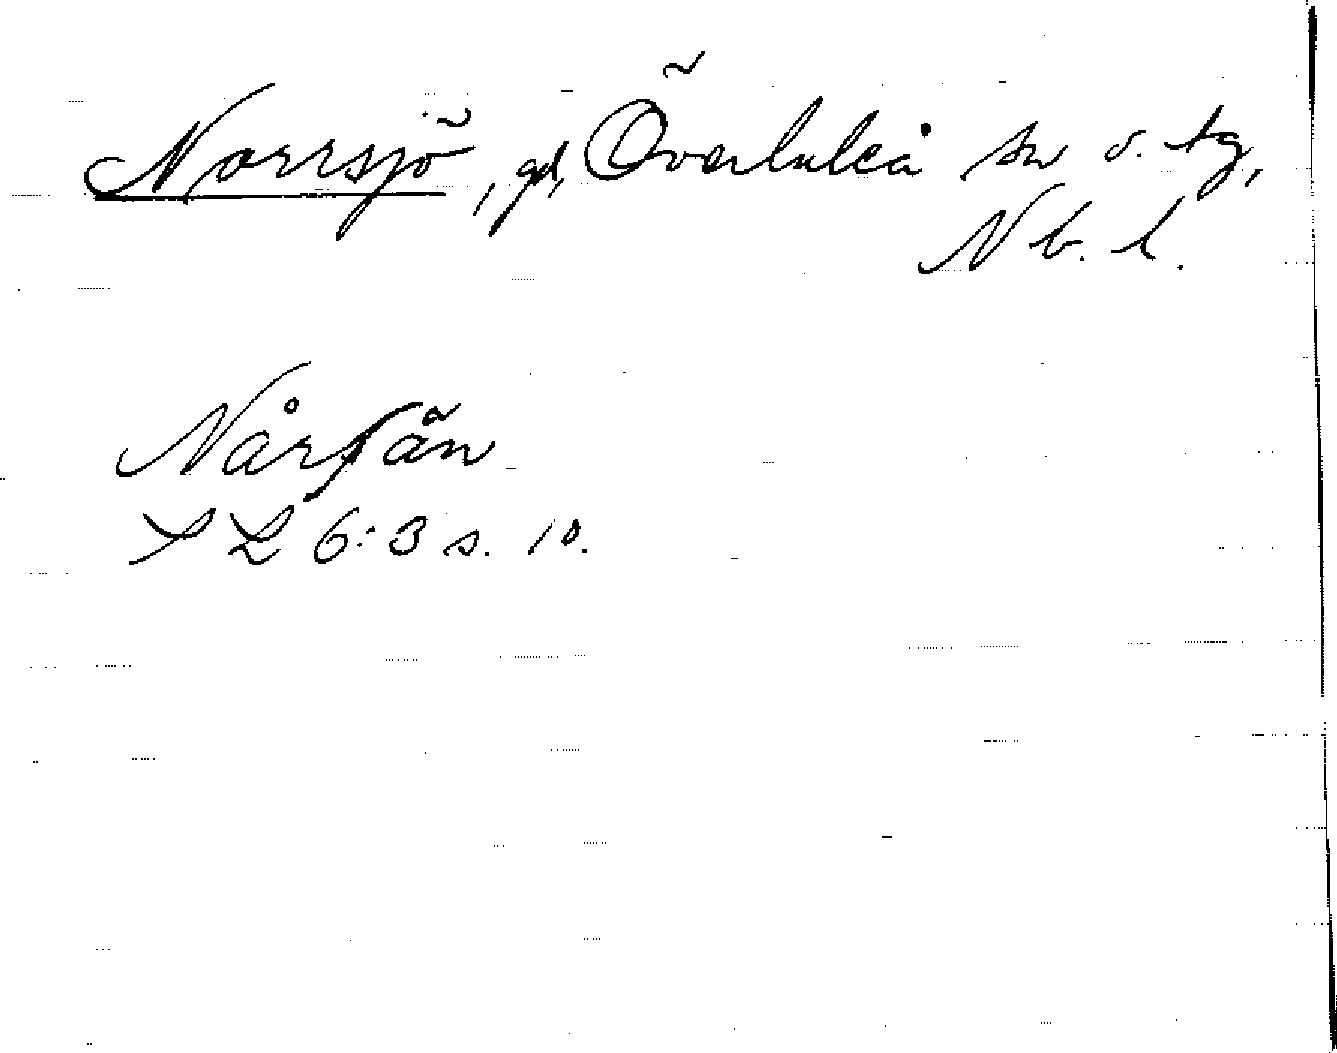 Norrsjö, gd, Överluleå sn o. tg,
Nb. l.
Nårſän
6:3 s. 10.